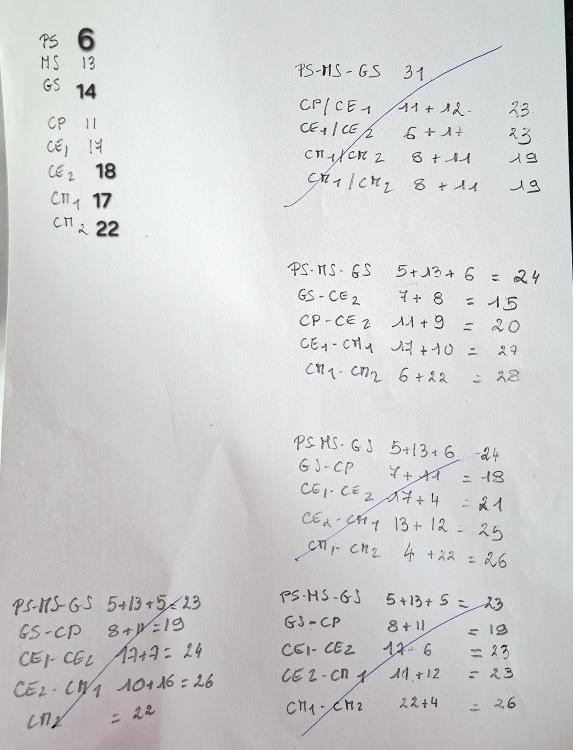 PS 6
MS 13
GS 14
CP 11
CE1 17
CE2 18
CM1 17
CM2 22
PS-MS-GS 31
CP/CE1 11 + 12 23
CE1/CE2 6 + 17 23
CM1/CM2 8 + 11 19
CM1/CM2 8 + 11 19
PS-MS-GS 5+13+6 = 24
GS-CE2 7+8 = 15
CP-CE2 11+9 = 20
CE1-CM1 17+10 = 27
CM1-CM2 6+22 = 28
PS-MS-GS 5+13+6 24
GS-CP 7+11 = 18
CE1-CE2 17+4 = 21
CE2-CM1 13+12 = 25
CM1-CM2 4+22 = 26
PS-MS-GS 5+13+5=23
GS-CP 8+11=19
CE1-CE2 17+7= 24
CE2-CM1 10+16=26
CM2 = 22
PS-MS-GS 5+13+5 = 23
GS-CP 8+11 = 19
CE1-CE2 17-6 = 23
CE2-CM1 11+12 = 23
CM1-CM2 22+4 = 26